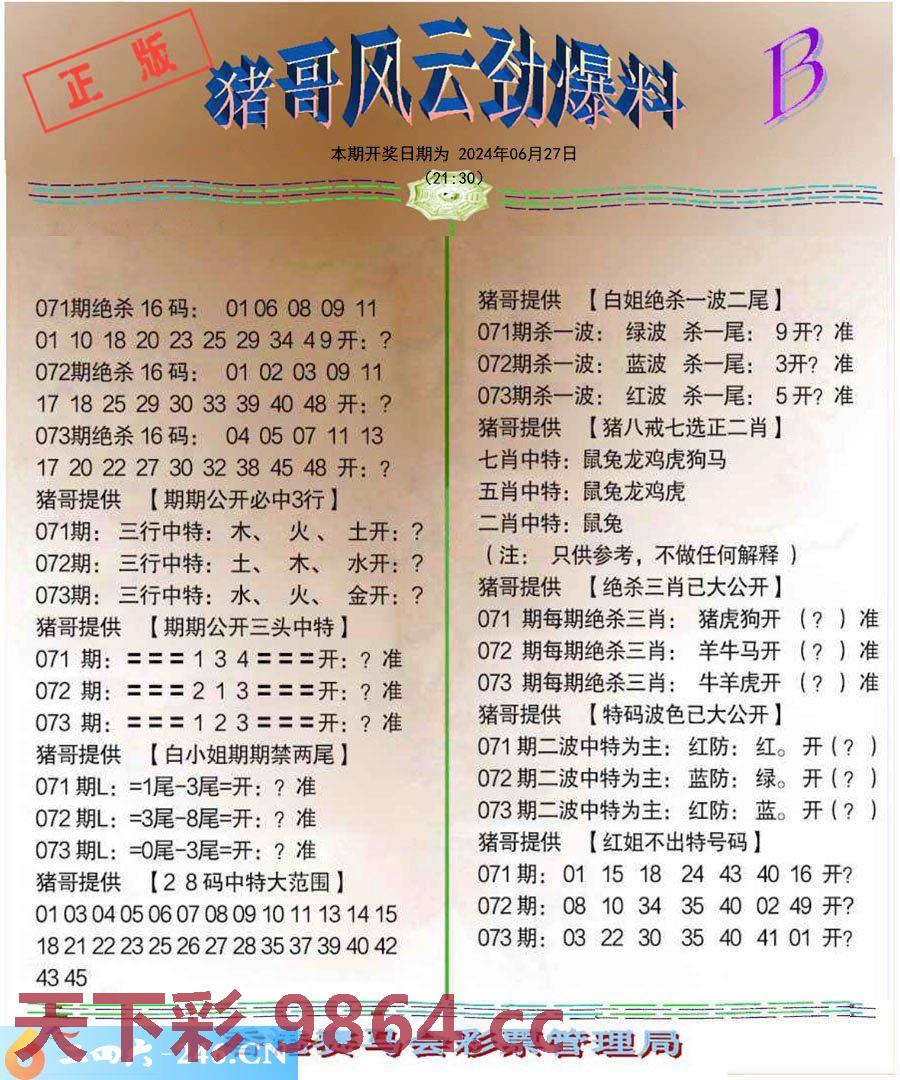 正版
猪哥风云劲爆料
B
本期开奖日期为 2024年06月27日
(21:30)
071期绝杀16码： 01 06 08 09 11
01 10 18 20 23 25 29 34 49开：?
072期绝杀16码： 01 02 03 09 11
17 18 25 29 30 33 39 40 48 开：?
073期绝杀16码： 04 05 07 11 13
17 20 22 27 30 32 38 45 48 开：?
猪哥提供 【期期公开必中3行】
071期： 三行中特： 木、 火、 土开：?
072期： 三行中特： 土、 木、 水开：?
073期： 三行中特： 水、 火、 金开：?
猪哥提供 【期期公开三头中特】
071 期：〓〓〓134〓〓〓开：? 准
072 期：〓〓〓213〓〓〓开：? 准
073 期：〓〓〓123〓〓〓开：? 准
猪哥提供 【白小姐期期禁两尾】
071期L：=1尾-3尾=开：? 准
072期L：=3尾-8尾=开：? 准
073期L：=0尾-3尾=开：? 准
猪哥提供 【28码中特大范围】
01 03 04 05 06 07 08 09 10 11 13 14 15
18 21 22 23 25 26 27 28 35 37 39 40 42
43 45
猪哥提供 【白姐绝杀一波二尾】
071期杀一波： 绿波 杀一尾： 9开? 准
072期杀一波： 蓝波 杀一尾： 3开? 准
073期杀一波： 红波 杀一尾： 5开? 准
猪哥提供 【猪八戒七选正二肖】
七肖中特：鼠兔龙鸡虎狗马
五肖中特：鼠兔龙鸡虎
二肖中特：鼠兔
（注： 只供参考，不做任何解释）
猪哥提供 【绝杀三肖已大公开】
071 期每期绝杀三肖： 猪虎狗开 （?）准
072 期每期绝杀三肖： 羊牛马开 （?）准
073 期每期绝杀三肖： 牛羊虎开 （?）准
猪哥提供 【特码波色已大公开】
071期二波中特为主：红防：红。开(?)
072期二波中特为主：蓝防：绿。开(?)
073期二波中特为主：红防：蓝。开(?)
猪哥提供 【红姐不出特号码】
071期： 01 15 18 24 43 40 16 开?
072期： 08 10 34 35 40 02 49 开?
073期： 03 22 30 35 40 41 01 开?
天下彩 9864.cc
二四六-246.CN
马会彩票管理局